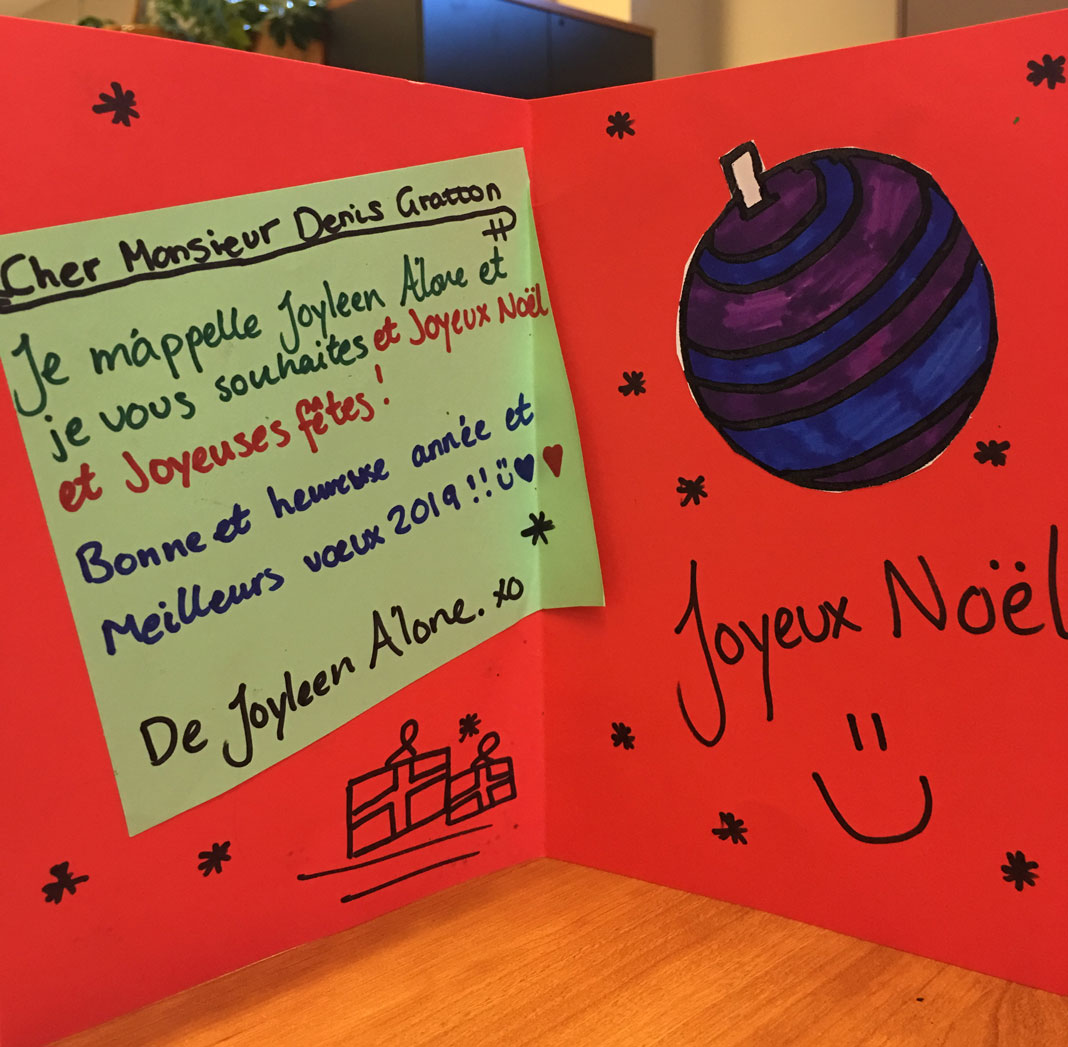 Cher Monsieur Denis Gratton
Je m'appelle Joyleen Alone et
je vous souhaites et Joyeux Noël
et Joyeuses fêtes!
Bonne et heureuse année et
Meilleurs vœux 2019!! ü♥♥
De Joyleen Alone. xo
Joyeux Noël